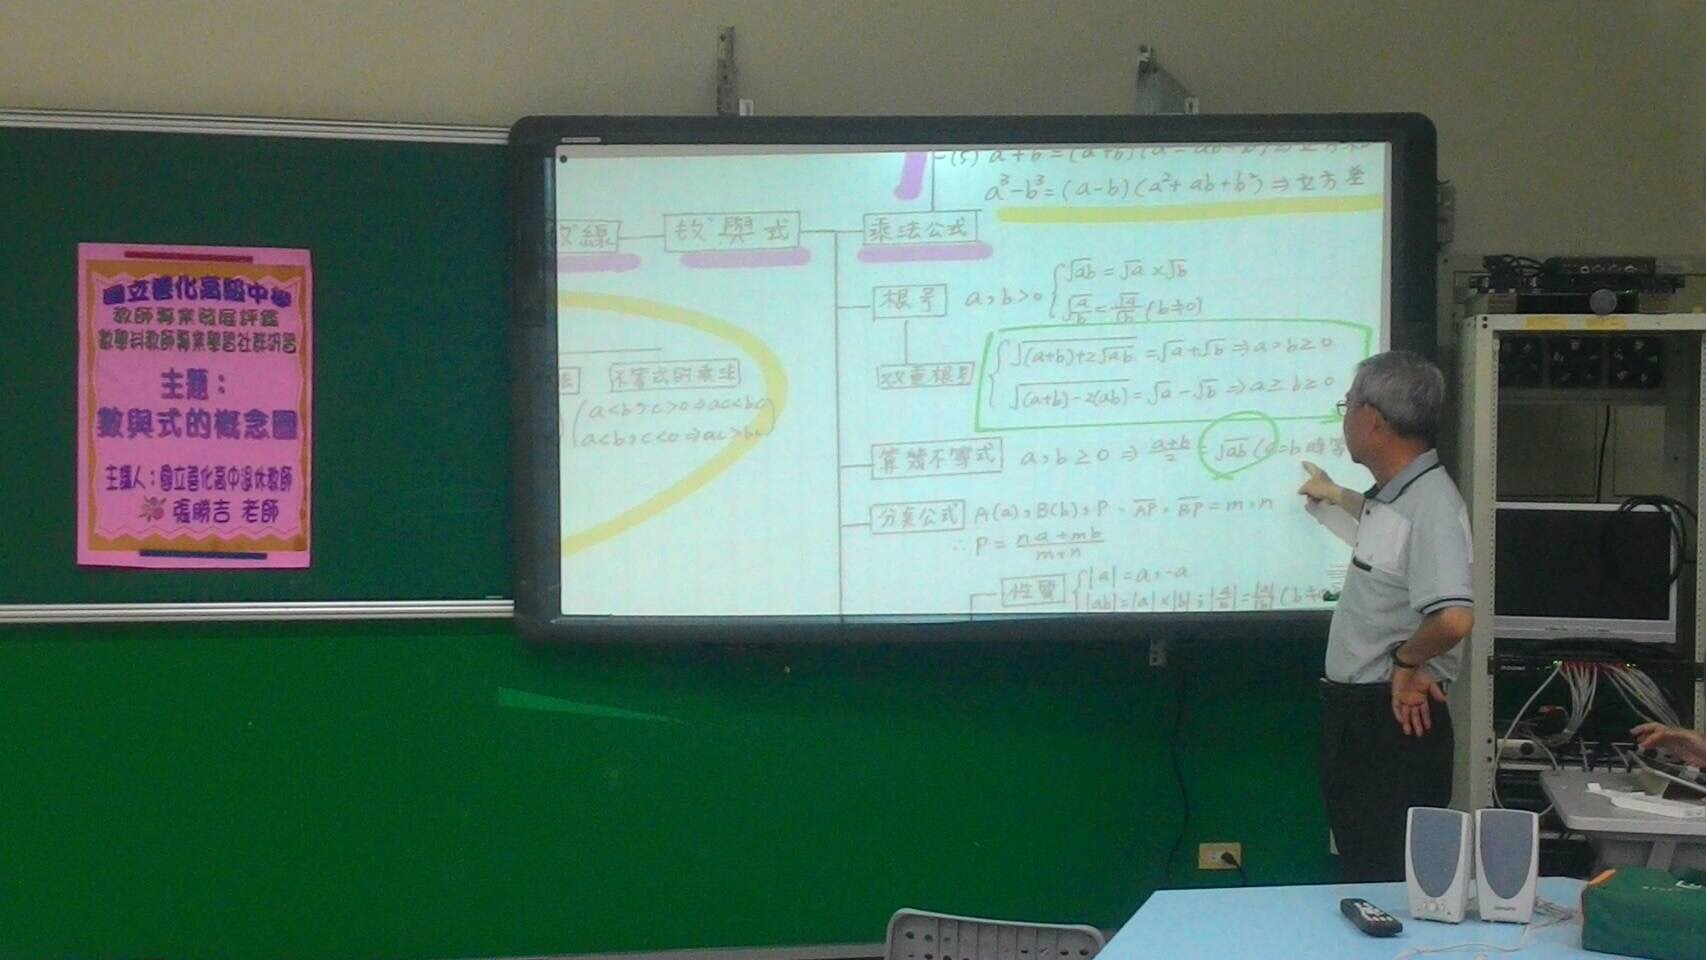 國立善化高級中學
教師專業發展評鑑
數學科教師專業學習社群研習
主題：
數與式的概念圖
主講人：國立善化高中退休教師
張勝吉 老師
a³-b³=(a-b)(a²+ab+b²)⇒立方差
數線
數與式
乘法公式
根号
a,b>0
√ab=√a×√b
√(a/b)=√a/√b (b≠0)
双重根号
√((a+b)+2√ab)=√a+√b⇒a,b≥0
√((a+b)-2(ab)=√a-√b⇒a≥b≥0
不等式的乘法
a<b,c>0⇒ac<bc
a<b,c<0⇒ac>bc
算幾不等式
a,b≥0⇒(a+b)/2=√ab(a=b時等
分點公式
A(a),B(b),P-AP:BP=m:n
∴P=(na+mb)/(m+n)
性質
|a|=a,-a
|ab|=|a|×|b|;|a/b|=|a|/|b| (b≠0